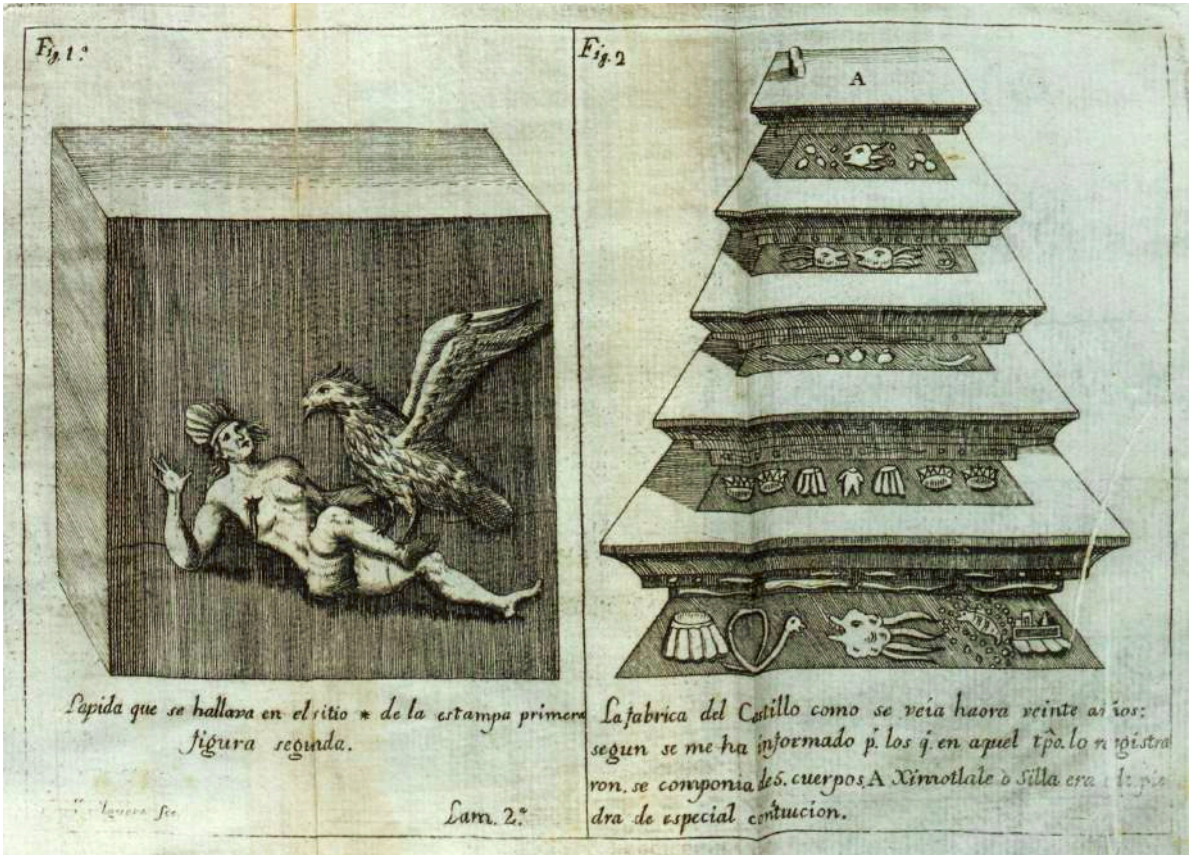 Fig. 1.ª
Lapida que se hallava en el sitio * de la estampa primera
figura segunda.
Lam. 2.ª
Fig. 2
A
La fabrica del Castillo como se veía haora veinte años:
segun se me ha informado p.r los q.e en aquel tpô. lo registra
ron. se componia de 5. cuerpos. A Ximotlale ò Silla era de pie
dra de especial contuicion.